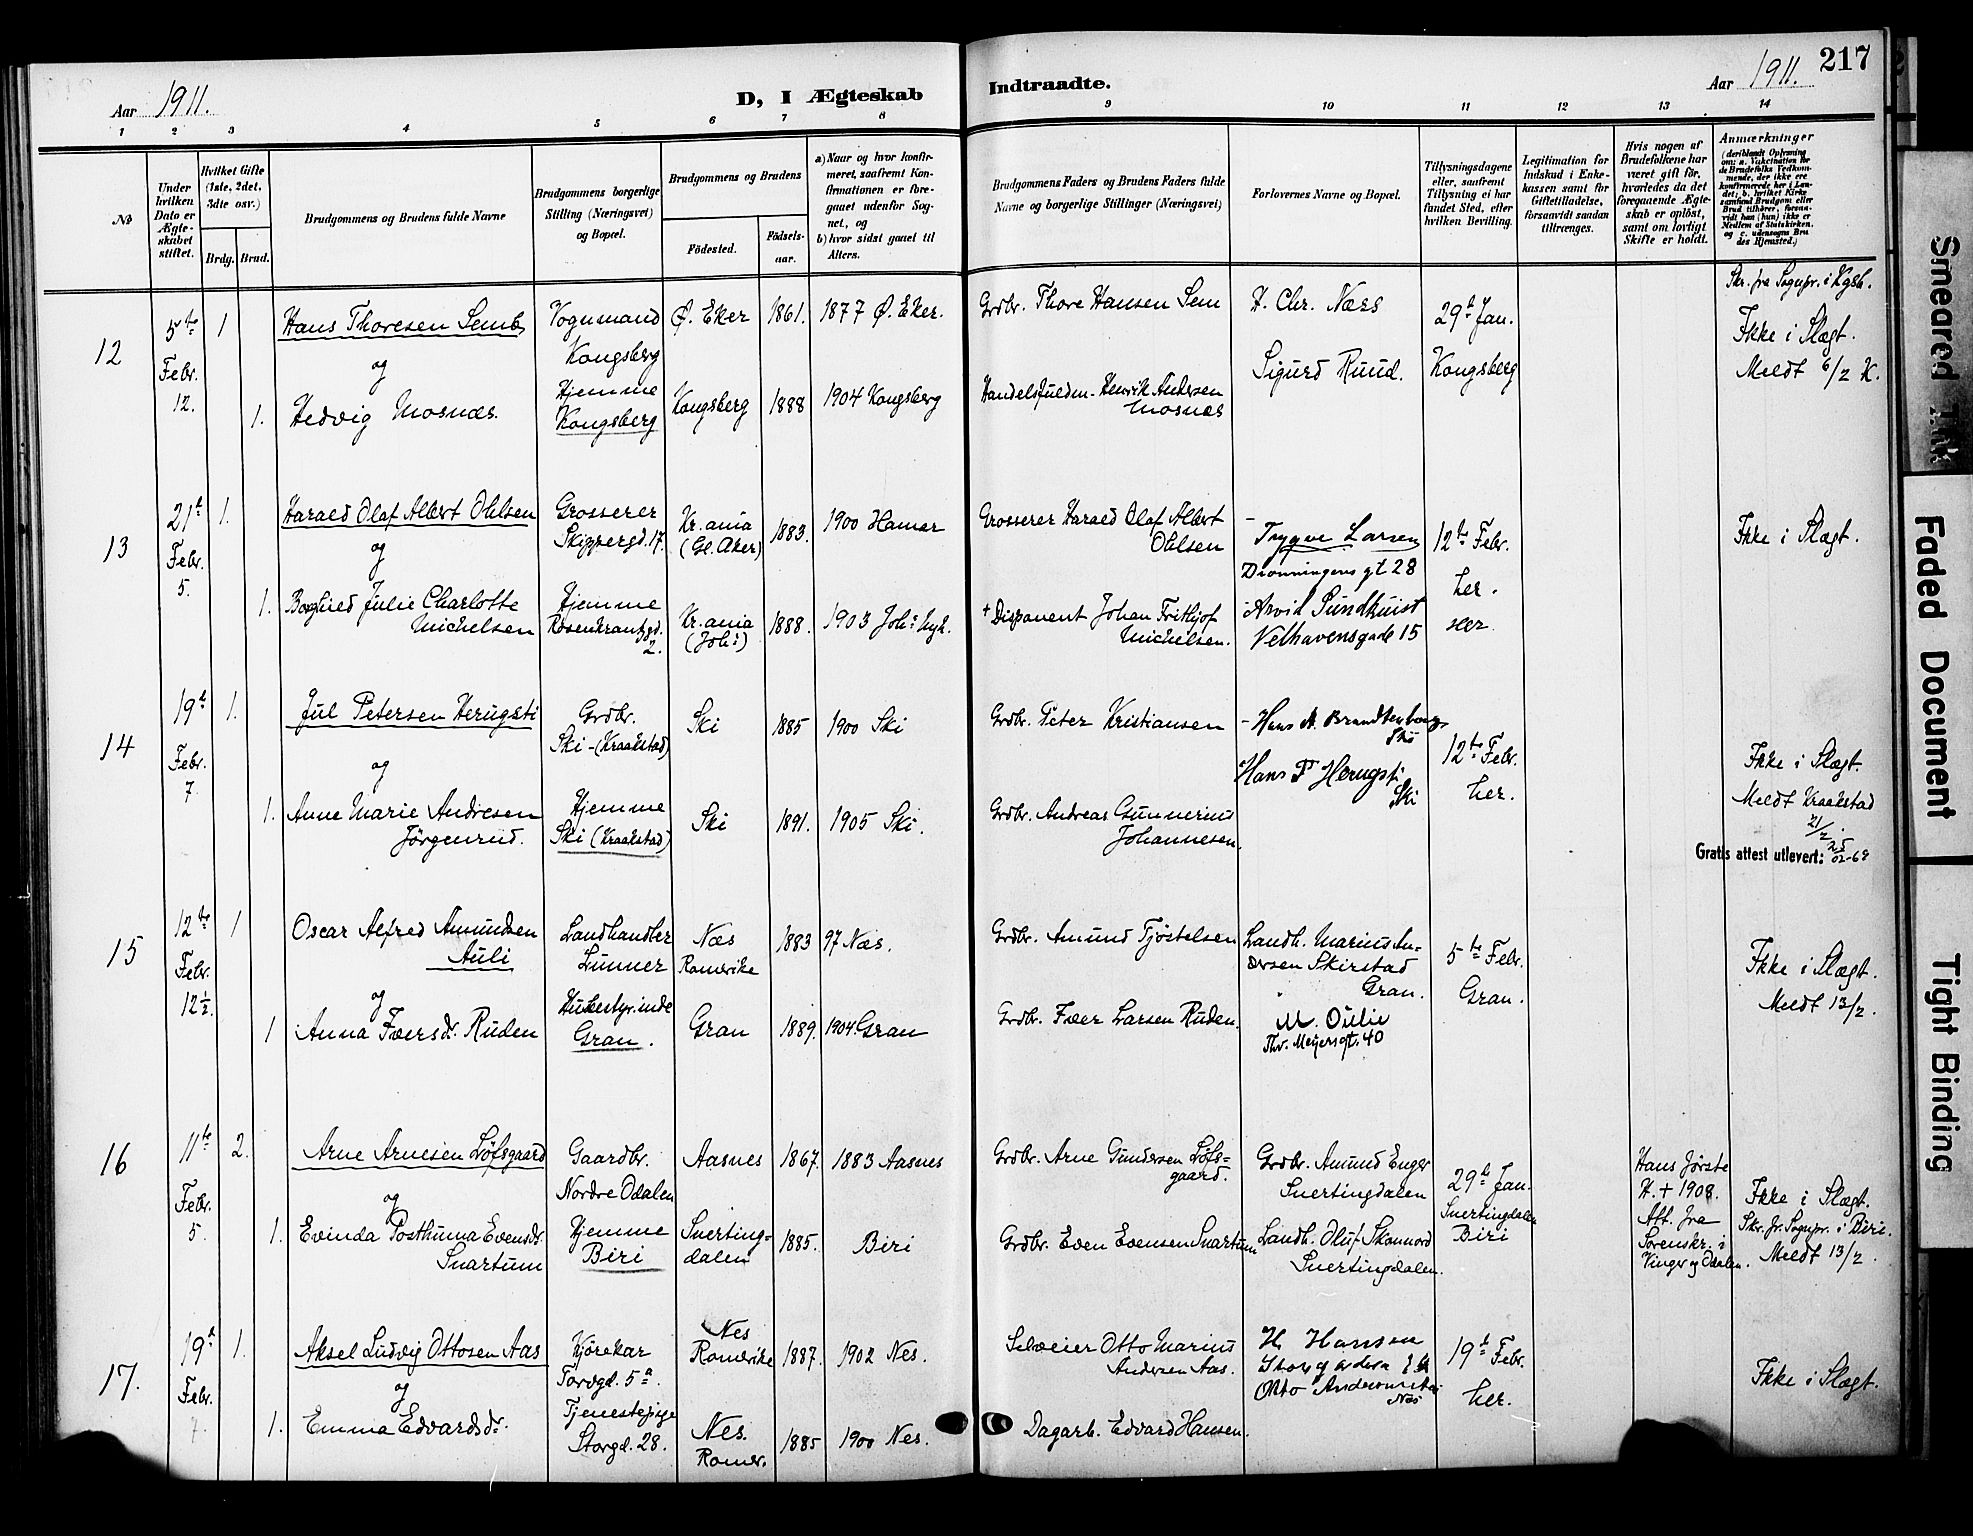 Aar 1911.
D, I Ægteskab Indtraadte.
Aar 1911. 217
1 2 3 4 5 6 7 8 9 10 11 12 13 14
№
Under hvilken Dato er Ægteskabet stiftet.
Hvilket Gifte (1ste, 2det, 3dte osv.)
Brdg. Brud.
Brudgommens og Brudens fulde Navne
Brudgommens borgerlige Stilling (Næringsvei) og Bopæl.
Brudgommens og Brudens
Fødested.
Fødselsaar.
a) Naar og hvor konfirmeret, saafremt Konfirmationen er foregaaet udenfor Sognet, og
b) hvor sidst gaaet til Alters.
Brudgommens Faders og Brudens Faders fulde Navne og borgerlige Stillinger (Næringsvei)
Forlovernes Navne og Bopæl.
Tillysningsdagene eller, saafremt Tillysning ei har fundet Sted, efter hvilken Bevilling.
Legitimation for Indskud i Enkekassen samt for Giftetilladelse, forsaavidt saadan tiltrænges.
Hvis nogen af Brudefolkene har været gift før, hvorledes da det foregaaende Ægteskab er opløst, samt om lovligt Skifte er holdt.
Anmærkninger
12
5te Febr. 12.
1
Hans Thoresen Semb
og
1. Hedvig Mosnæs.
Vognmand Kongsberg
Hjemme Kongsberg
Ø. Eker 1861. 1877 Ø. Eker.
Kongsberg 1888 1904 Kongsberg
Grdbr. Thore Hansen Sem
Handelsfuldm. Henrik Andersen Mosnæs
H. Chr. Næss
Sigurd Ruud.
29d Jan. Kongsberg
Skr. fra Sognpr. i Kgsb.
Ikke i Slægt.
Meldt 6/2 K.
13
21d Febr. 5.
1.
Harald Olaf Albert Ohlsen
og
1. Borghild Julie Charlotte Michelsen
Grosserer Skippergd. 17.
Hjemme Rosenkrantzgd. 2.
Kr.ania (Gl. Aker) 1883. 1900 Hamar
Kr.ania (Joh:) 1888. 1903 Joh: Myh.
Grosserer Harald Olaf Albert Ohlsen
+ Disponent Johan Frithjof Michelsen.
Trygve Larsen
Dronningens gt 28
Arvid Sundkuist
Velhavensgade 15
12te Febr. her.
her.
Ikke i Slægt.
14
19d Febr. 7
1.
Jul Petersen Herugsti
og
1. Anne Marie Andresen Jørgenrud.
Grdbr. Ski - (Kraakstad)
Hjemme Ski (Kraakstad)
Ski 1885 1900 Ski
Ski 1891. 1905 Ski.
Grdbr. Peter Kristiansen
Grdbr. Andreas Gunnerius Johannesen.
- Hans A. Brandtenborg Ski
Hans P Herugsti Ski
12te Febr. her.
Ikke i Slægt.
Meldt Kraakstad 21/2.
Gratis attest utlevert: 25/02-69
15
12te Febr. 12½.
1
Oscar Alfred Amundsen Auli
og
1 Anna Fæersdr. Ruden
Landhandler Lunner
Husbestyrinde Gran.
Næs Romerike 1883 97 Næs.
Gran 1889. 1904 Gran
Grdbr. Amund Tjøstelsen
Grdbr. Fæer Larsen Ruden.
Landh. Marius Andersen Skirstad Gran.
M. Oulie
Thv. Meyersgt. 40
5te Febr. Gran.
Ikke i Slægt.
Meldt 13/2.
16
11te Febr. 5.
2.
Arne Arnesen Løfsgaard
og
1. Evinda Posthuma Evensdr. Snartum
Gaardbr. Nordre Odalen
Hjemme Biri
Aasnes 1867. 1883 Aasnes
Snertingdalen 1885. Biri
Grdbr. Arne Gundersen Løfsgaard.
Grdbr. Even Evensen Snartum
Grdbr. Amund Enger Snertingdalen
Landh. Oluf Skonnord Snertingdalen.
29d Jan. Snertingdalen Biri
Hans Jørste H. + 1908. Att. fra Sorenskr. i Vinger og Odalen.
Ikke i Slægt.
Skr. fr. Sognpr. i Biri.
Meldt 13/2.
17.
19d Febr. 7.
1.
Aksel Ludvig Ottosen Aas
og
1. Emma Edvardsdr.
Kjørekar Torvgd. 5a.
Tjenestepige Storgd. 28.
Nes Romerike 1887. 1902 Nes.
Nes. Romer. 1885 1900 Nes.
Selveier Otto Marius Andersen Aas.
Dagarb. Edvard Hansen.
H Hansen
Otto Andersen
Nes
19d Febr. her.
Ikke i Slægt.
Smeared Ink
Faded Document
Tight Binding